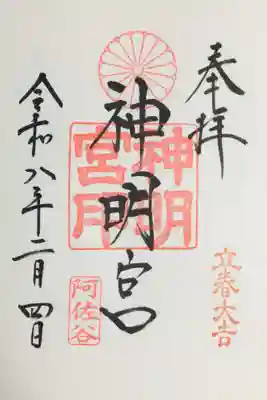 奉拝
立春大吉
神明宮
神明宮
阿佐谷
令和八年二月四日